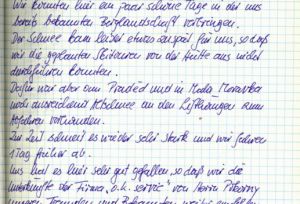 Wir konnten hier ein paar schöne Tage in der uns
bereits bekannten Berglandschaft verbringen.
Der Schnee kam leider etwas zu spät für uns, so daß
wir die geplanten Skitouren von der Hütte aus nicht
durchführen konnten.
Dafür war aber am Praděd und in Mala Moravka
noch ausreichend Altschnee an den Lifthängen zum
Abfahren vorhanden.
Zur Zeit schneit es wieder sehr stark und wir fahren
1 Tag früher ab.
Uns hat es hier sehr gut gefallen, so daß wir die
Unterkünfte der Firma "a.k. service" von Herrn
unseren Freunden und Bekannten weiter